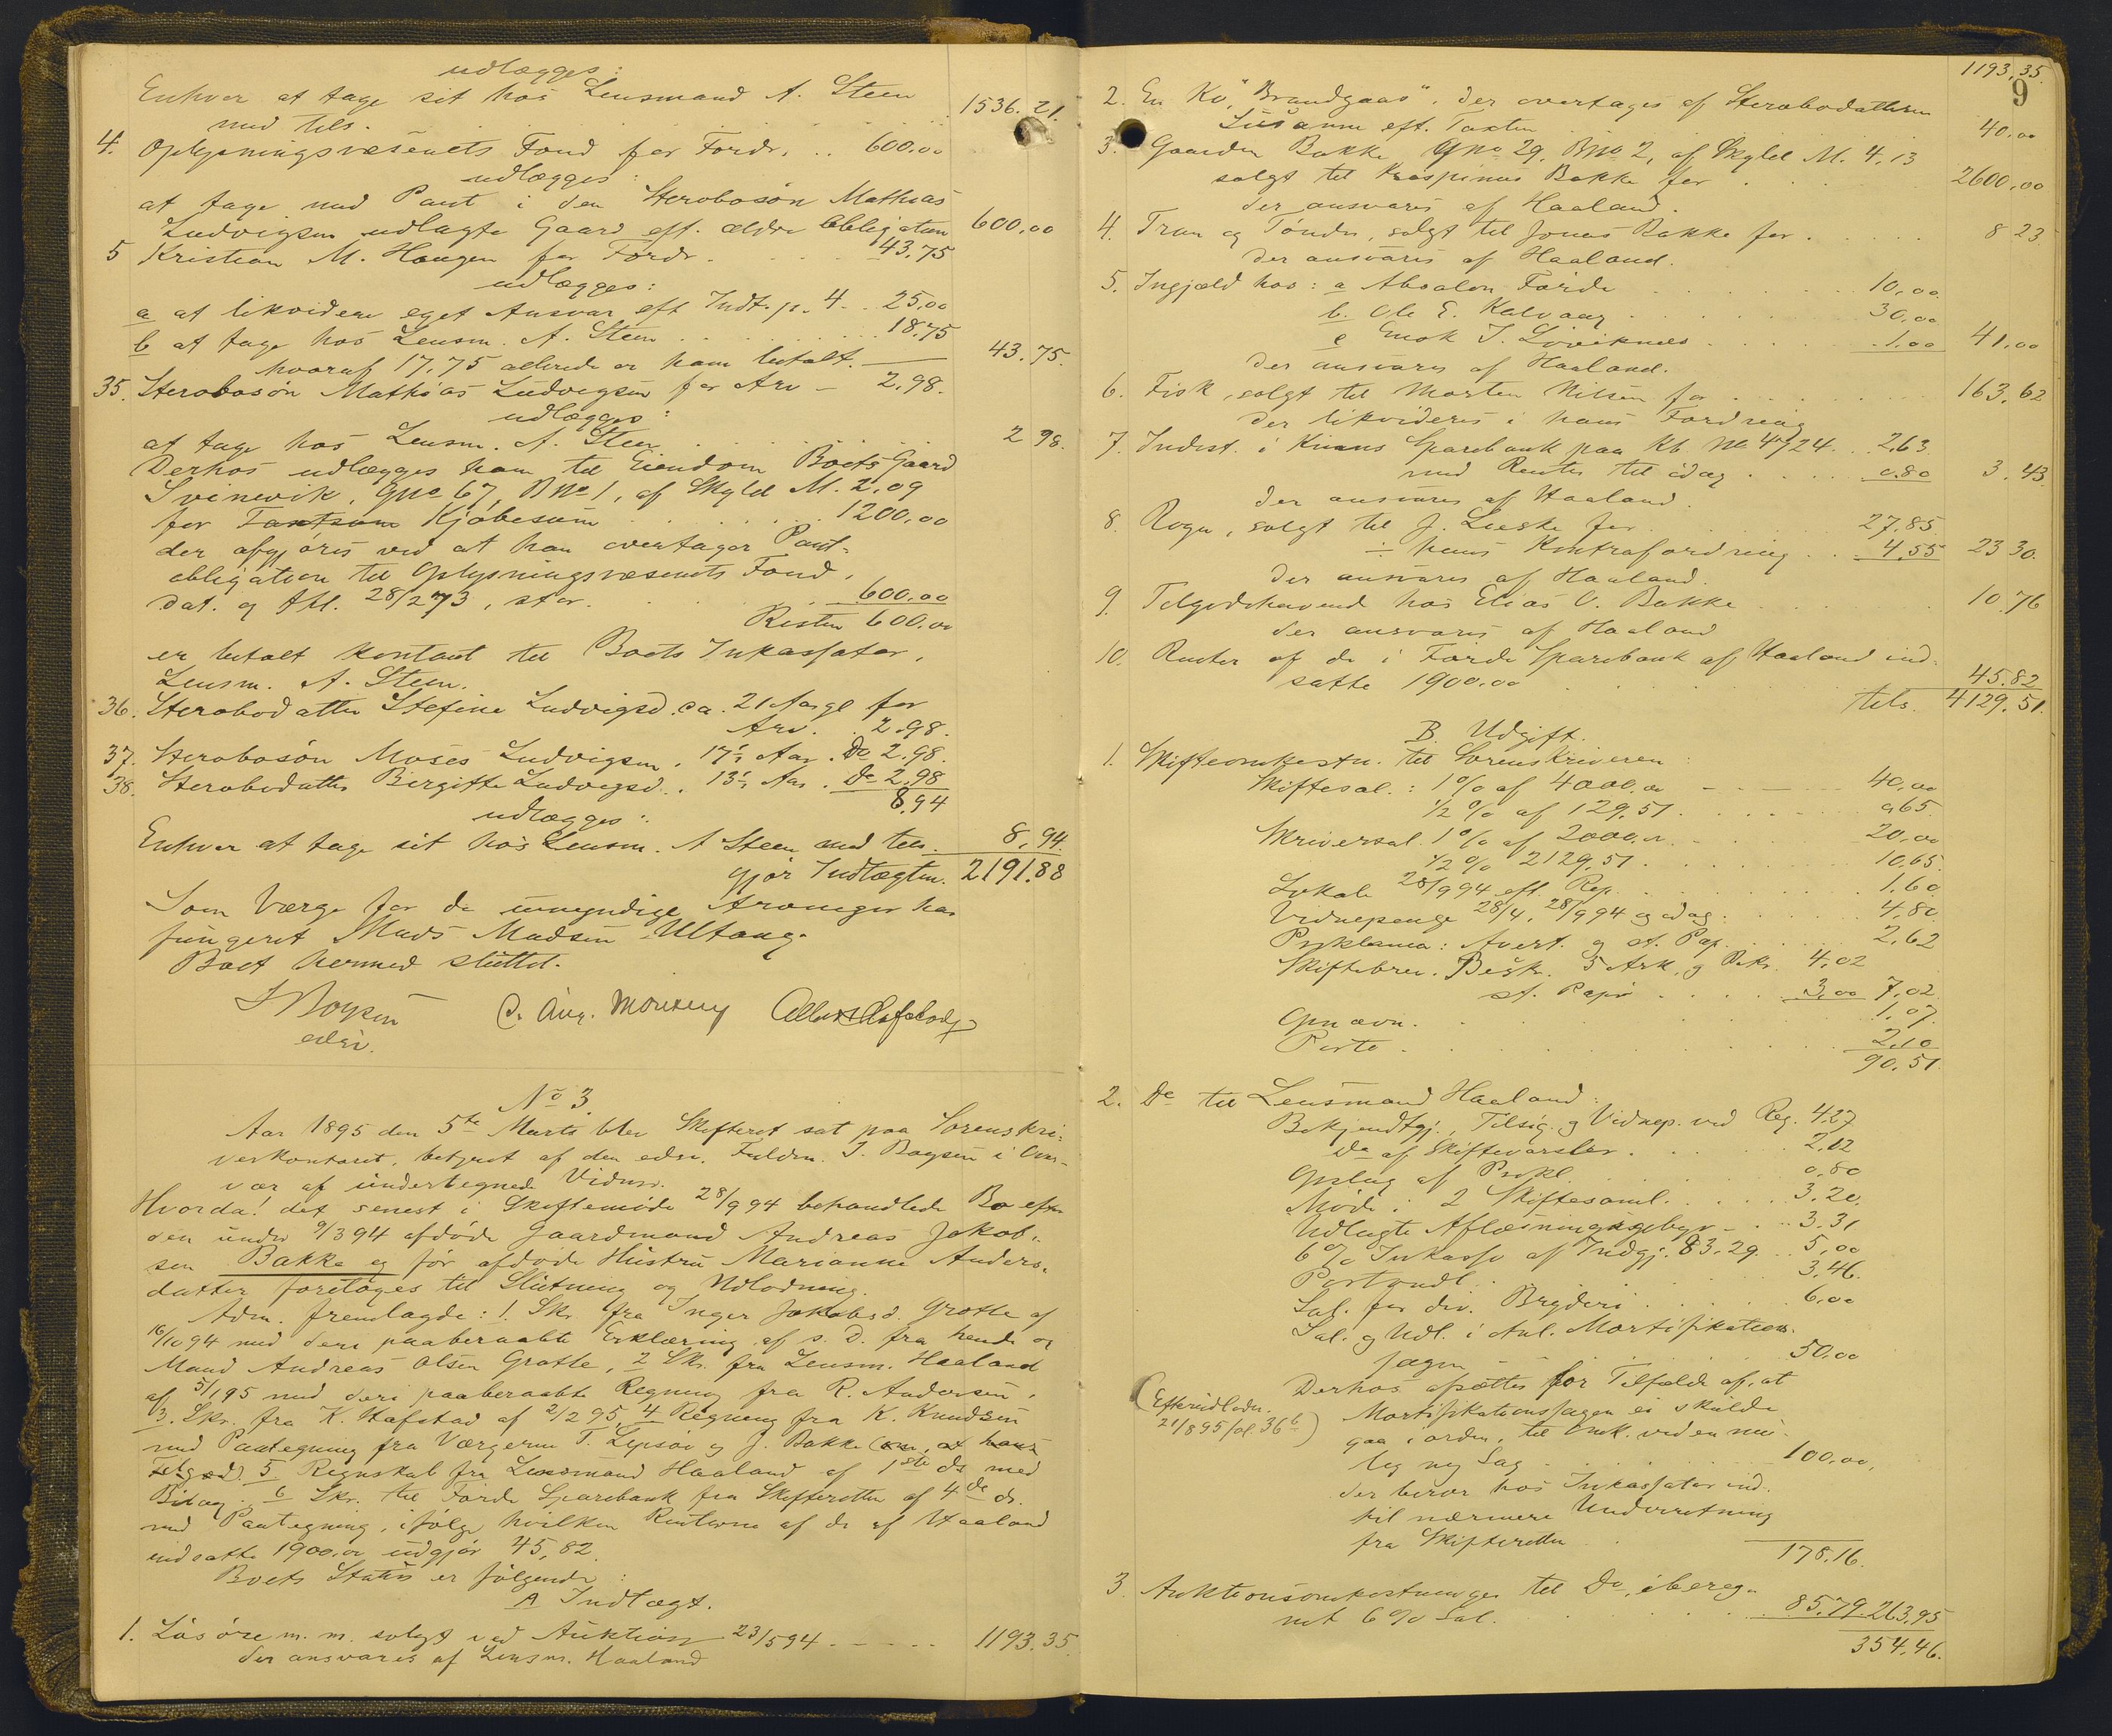 udlægges:
Enhver at tage sit hos Lensmand A. Steen
med tils. 1536.21.
4. Oplysningsvæsenets Fond for Fordr. .. 600.00
udlægges:
at tage med Pant i den Sterbosøn Mathias
Ludvigsen udlagte Gaard eft. ældre Obligation 600,00
5 Kristian M. Haugen for Fordr. 43,75
udlægges:
a at likvidere eget Ansvar eft Indt. p. 4 .. 25,00
b at tage hos Lensm. A. Steen 18.75
hvoraf 17,75 allerede er ham betalt. 43.75.
35. Sterbosøn Mathias Ludvigsen for Arv – 2,98.
udlægges:
at tage hos Lensm. A. Steen 2 98.
Derhos udlægges ham til Eiendom Boets Gaard
Svinevik, Gno 67, Bno 1, af Skyld M. 2,09
for Taxtsum Kjøbesum 1200,00
der afgjøres ved at han overtager Pant-
obligation til Oplysningsvæsenets Fond,
dat. og thl. 28/2 73, stor. 600.00
Resten 600.00
er betalt kontant til Boets Inkassator,
Lensm. A. Steen.
36. Sterbodatter Stefine Ludvigsd. ca. 21 Aar gl for
Arv. 2.98.
37. Sterbosøn Moses Ludvigsen, 17½ Aar. Do 2.98.
38. Sterbodatter Birgitte Ludvigsd., 13½ Aar. Do 2,98
8,94
udlægges:
Enhver at tage sit hos Lensm. A Steen med tils. 8,94.
gjør Indtægten. 2191.88
Som Værge for de umyndige Arvinger har
fungeret Mads Madsen Ultang.
Boet hermed sluttet.
J Boysen
edsv.
No 3.
Aar 1895 den 5te Marts blev Skifteret sat paa Sorenskri-
verkontoret, betjent af den edsv. Fuldm. J. Boysen i Over-
vær af undertegnede Vidner.
Hvorda! det senest i Skiftemøde 28/9 94 behandlede Bo efter
den under 9/3 94 afdøde Gaardmand Andreas Jakob-
sen Bakke og før afdøde Hustru Marianne Anders-
datter foretages til Slutning og Udlodning.
Adm. fremlagde: 1. Skr. fra Inger Jakobsd. Grotle af
16/10 94 med deri paaberaabte Erklæring af s. D. fra hende og
Mand Andreas Olsen Grotle, 2 Skr. fra Lensm. Haaland
af 5/1 95 med deri paaberaabte Regning fra R. Andersen,
3. Skr. fra K. Hafstad af 2/2 95, 4 Regning fra K. Knudsen
med Paategning fra Værgerne T. Lepsøi og J. Bakke (om, at hans
Telg. ed). 5 Regnskab fra Lensmand Haaland af 1ste ds med
Bilag. 6 Skr. til Førde Sparebank fra Skifteretten af 4de ds.
med Paategning, ifølge hvilken Renterne af de af Haaland
indsatte 1900.00 udgjør 45,82.
Boets Status er følgende:
A Indtægt.
1. Løsøre m. m. solgt ved Auktion 23/5 94 1193.35
der ansvares af Lensm. Haaland
9
1193,35.
2. En Ko, "Brandgaas", der overtages af Sterbodatteren
Susanne eft. Taxten 40.00
3. Gaarden Bakke Gno 29, Bno 2, af Skyld M. 4,13
solgt til Kraspinus Bakke for 2600,00
der ansvares af Haaland.
4. Tran og Tønder, solgt til Jonas Bakke for 8 23.
der ansvares af Haaland.
5. Ingjæld hos: a Absalon Førde 10,00.
b. Ole E. Kalvaag 30,00
c Enok I. Løviknes 1.00 41,00
der ansvares af Haaland.
6. Fisk, solgt til Morten Nilsen for 163,62
der likvideres i hans Fordring
7. Indest. i Kinns Sparebank paa Kb. No 4724 2,63.
med Renter til idag 0.80 3.43.
der ansvares af Haaland.
8. Rogn, solgt til J. Lieske for 27,85
÷ hans Kontrafordring 4,55 23 30.
der ansvares af Haaland.
9. Tilgodehavend hos Elias O. Bakke 10 76
der ansvares af Haaland
10. Renter af de i Førde Sparebank af Haaland ind-
satte 1900.00 45.82
tils. 4129.51.
B Udgift.
1. Skifteomkostn. til Sorenskriveren:
Skiftesal.: 1% af 4000.00 40,00
½ % af 129,51 0,65
Skriversal. 1% af 2000.00 20,00
½ % 2129,51 10,65
Lokale 28/9 94 eft. Rep. 1.60
Vidnepenge 28/4, 28/9 94 og idag 4,80
Proklama: Avert. og st. Pap. 2,62
Skiftebrev. Besk. 5 Ark. og Rekv. 4,02
st. Papir 3,00 7,02
Opnævn. 1,07.
Porto 2,10
90,51.
2. Do til Lensmand Haaland:
Bekjendtgj., Tilsig. og Vidnep. ved Reg. 4,27
Do af Skiftevarsler. 2,12
Opslag af Prokl. 0,80
Møde i 2 Skiftesaml. 3.20
Udlagte Aflæsningsgebyr 3.31
6% Inkasso af Indgj. 83.29. 5,00
Portoudl. 3,46.
Sal. for div. Bryderi 6,00
Sal. og Udl. i Anl. Mortifikations-
sagen 50,00
Derhos afsættes for Tilfælde af, at
Mortifikationssagen ei skulde
gaa i orden, til Omk. ved en mu-
lig ny Sag 100.00,
der beror hos Inkassator ind-
til nærmere Underretning
fra Skifteretten
178.16.
(Efterudlodn.
21/8 95 fol. 36 b)
3. Auktionsomkostninger til Do, iberegn-
net 6% Sal. 85.79 263,95
354,46.